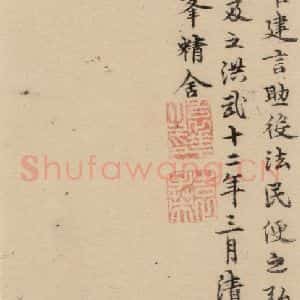 建言助役法民便之
及立洪武十二年三月清
峯精舍
Shufawang.cn